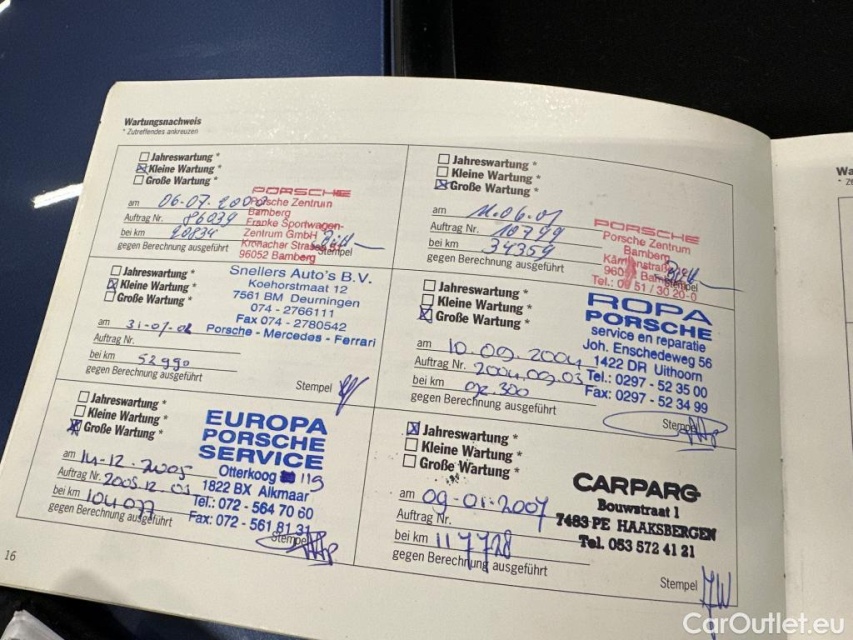 Wartungsnachweis
* Zutreffendes ankreuzen
Jahreswartung *
Kleine Wartung *
Große Wartung *
am 06-07-2000
Auftrag Nr. 86039
bei km 20834
gegen Berechnung ausgeführt
PORSCHE
Porsche Zentrum
Bamberg
Franke Sportwagen-
Zentrum GmbH
Kronacher Straße
96052 Bamberg
Stempel
Jahreswartung *
Kleine Wartung *
Große Wartung *
am 11.06.01
Auftrag Nr. 10799
bei km 34359
gegen Berechnung ausgeführt
PORSCHE
Porsche Zentrum
Bamberg
Stempel
Tel.: 09 51 / 30 20-0
Jahreswartung *
Kleine Wartung *
Große Wartung *
am 31-07-02
Auftrag Nr.
bei km 52990
gegen Berechnung ausgeführt
Snellers Auto's B.V.
Koehorstraat 12
7561 BM Deurningen
074 - 2766111
Fax 074 - 2780542
Porsche - Mercedes - Ferrari
Stempel
Jahreswartung *
Kleine Wartung *
Große Wartung *
am 10.09.2004
Auftrag Nr. 2004.09.03
bei km 92.300
gegen Berechnung ausgeführt
ROPA
PORSCHE
service en reparatie
Joh. Enschedeweg 56
1422 DR Uithoorn
Tel.: 0297 - 52 35 00
Fax: 0297 - 52 34 99
Stempel
Jahreswartung *
Kleine Wartung *
Große Wartung *
am 14-12-2005
Auftrag Nr. 2005.12.03
bei km 104077
gegen Berechnung ausgeführt
EUROPA
PORSCHE
SERVICE
Otterkoog 119
1822 BX Alkmaar
Tel.: 072 - 564 70 60
Fax: 072 - 561 81 31
Stempel
Jahreswartung *
Kleine Wartung *
Große Wartung *
am 09-01-2007
Auftrag Nr.
bei km 117728
gegen Berechnung ausgeführt
CARPARG
Bouwstraat 1
7483 PE HAAKSBERGEN
Tel. 053 572 41 21
Stempel
16
CarOutlet.eu